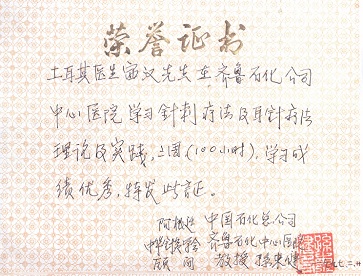 荣誉证书
土耳其医生宙汉先生在齐鲁石化公司
中心医院学习针刺疗法及耳针疗法
理论及实践，三周(100小时)，学习成
绩优秀，特发此证。
阿根廷 中国石化总公司
齐鲁石化中心医院
顾问 教授 孙东健